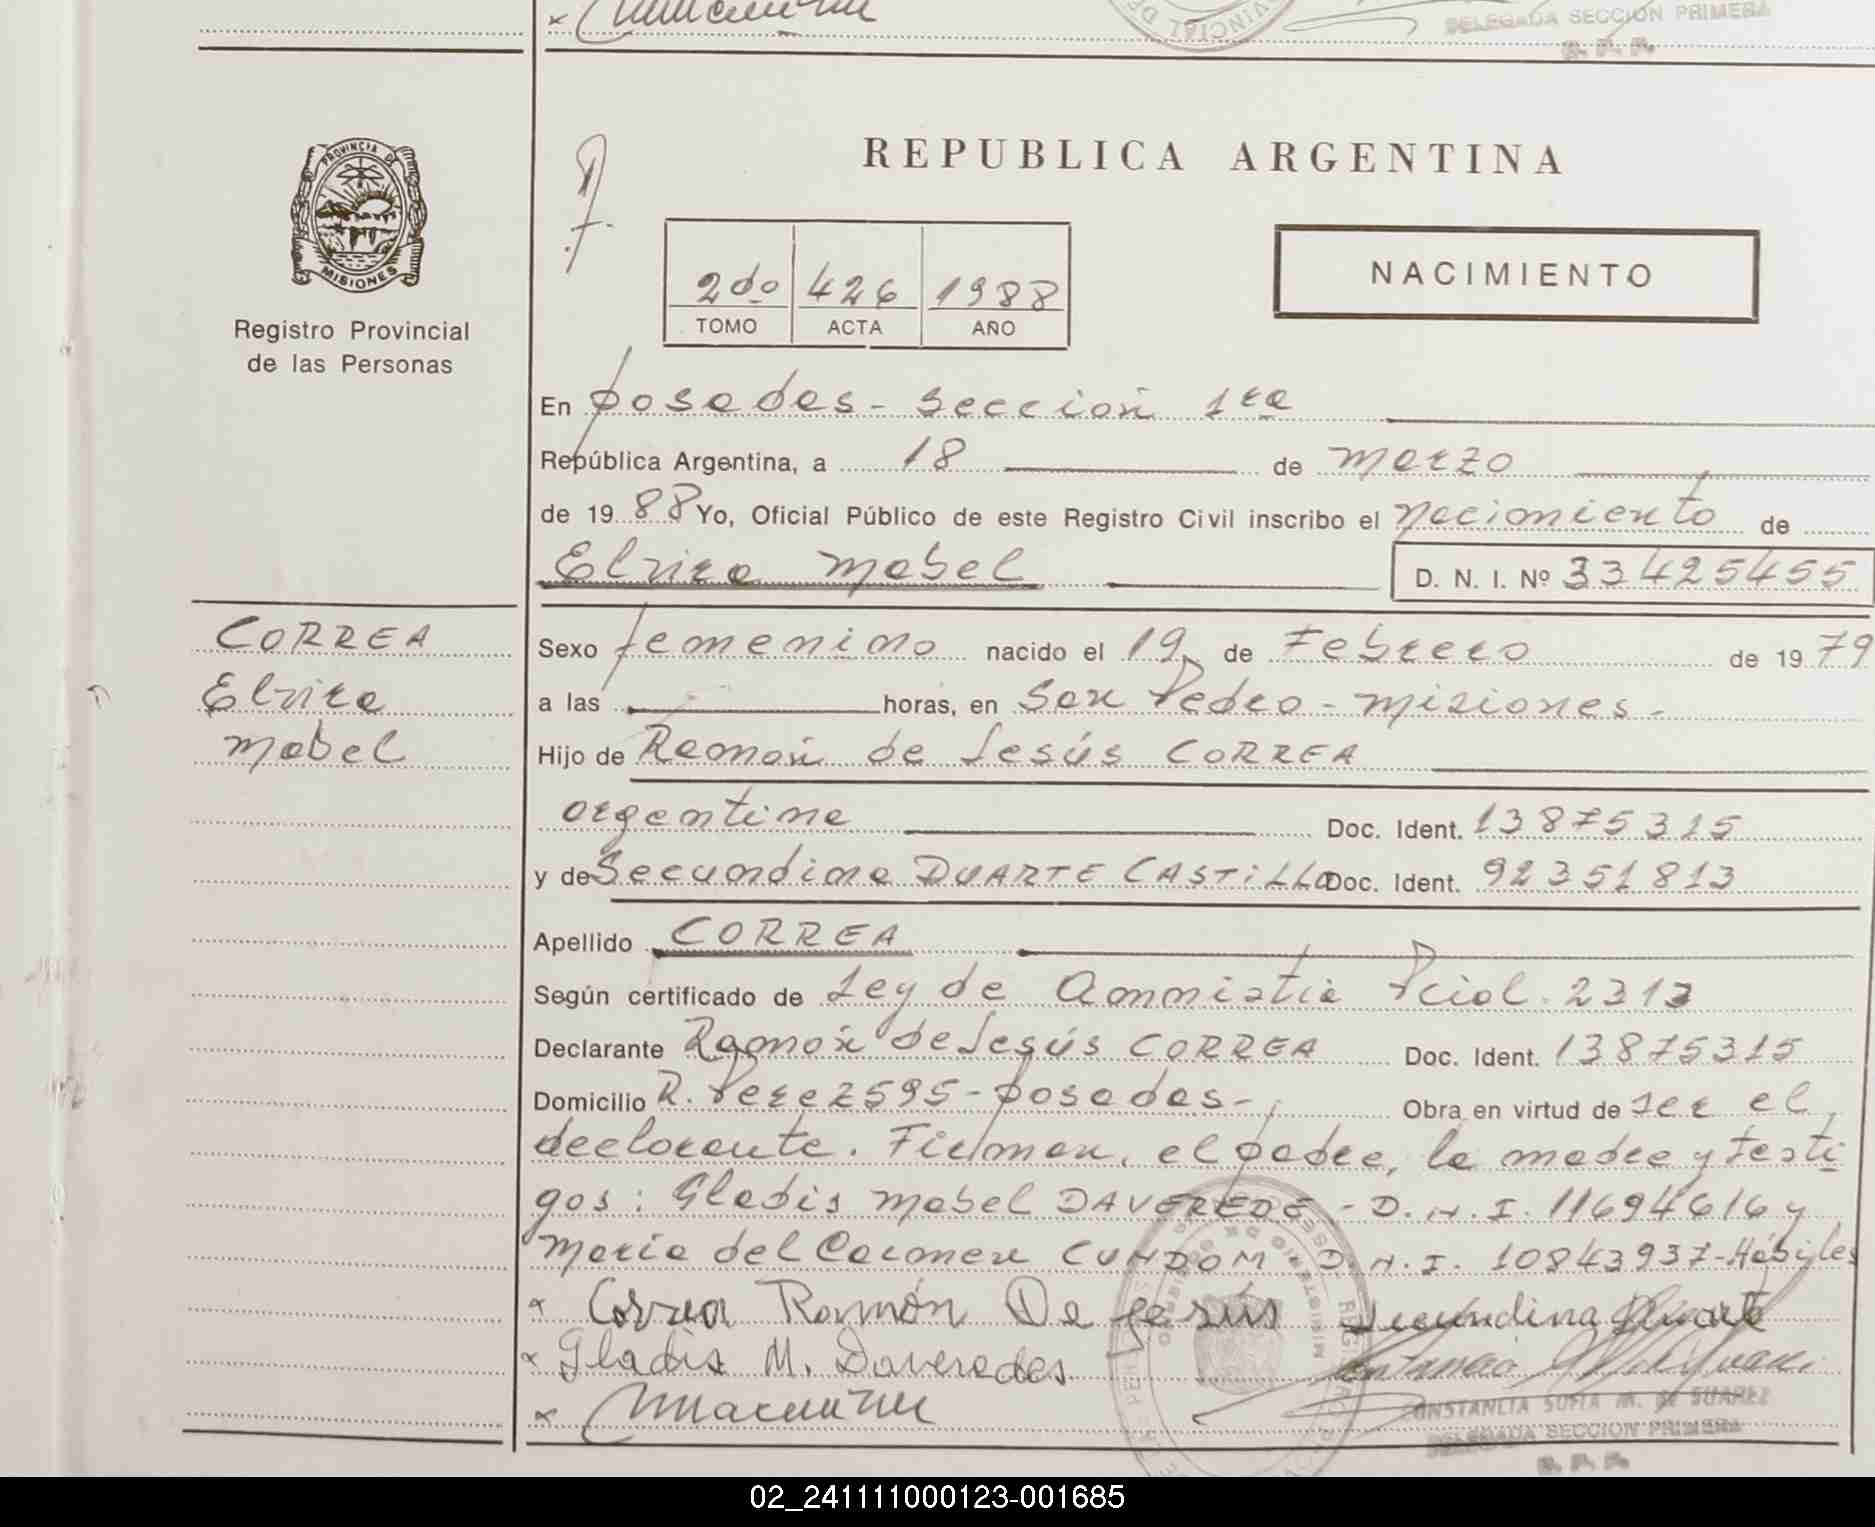 DELEGADA SECCION PRIMERA
R. P. P.
PROVINCIA DE
MISIONES
Registro Provincial
de las Personas
REPUBLICA ARGENTINA
2do 426 1988
TOMO ACTA AÑO
NACIMIENTO
En Posadas - Sección 1ra
República Argentina, a 18 de marzo
de 19 88 Yo, Oficial Público de este Registro Civil inscribo el nacimiento de
Elvira Mabel D. N. I. Nº 33425455
CORREA
Elvira
Mabel
Sexo femenino nacido el 19 de Febrero de 19 79
a las horas, en San Pedro - Misiones -
Hijo de Ramón de Jesús CORREA
argentina Doc. Ident. 13875315
y de Secundina DUARTE CASTILLO Doc. Ident. 92351813
Apellido CORREA
Según certificado de Ley de Amnistia Pcial. 2313
Declarante Ramón de Jesús CORREA Doc. Ident. 13875315
Domicilio R. Perez 595 - Posadas - Obra en virtud de ser el
declarante. Firman, el padre, la madre y testi
gos: Gladis Mabel DAVEREDE - D.N.I. 11694616 y
Maria del Carmen CUNDOM - D.N.I. 10843937 - Hábiles
x Correa Ramón De Jesús Secundina Duarte
x Gladis M. Daveredes
x
CONSTANCIA SOFIA M. de SUAREZ
DELEGADA SECCION PRIMERA
R. P. P.
02_241111000123-001685